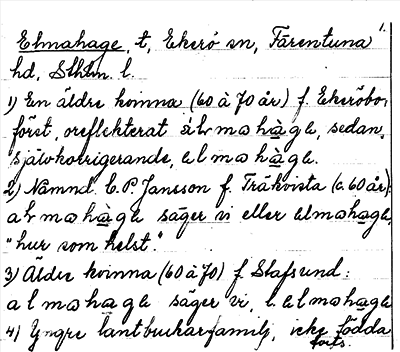 1.
Elmahage, t, Ekerö sn, Färentuna
hd, Sthlm l.
1) En äldre kvinna (60 à 70 år) f. Ekeröbo,
först, oreflekterat sedan,
självkorrigerande, almahàga.
2) Nämnd. C.P. Jansson f. Träkvista (c. 60 år):
säger vi eller almahaga,
"hur som helst".
3) Äldre kvinna (60 à 70) f Stafsund:
almahaga säger vi, l. almahaga
4) Yngre lantbrukarfamilj, icke födda
forts.